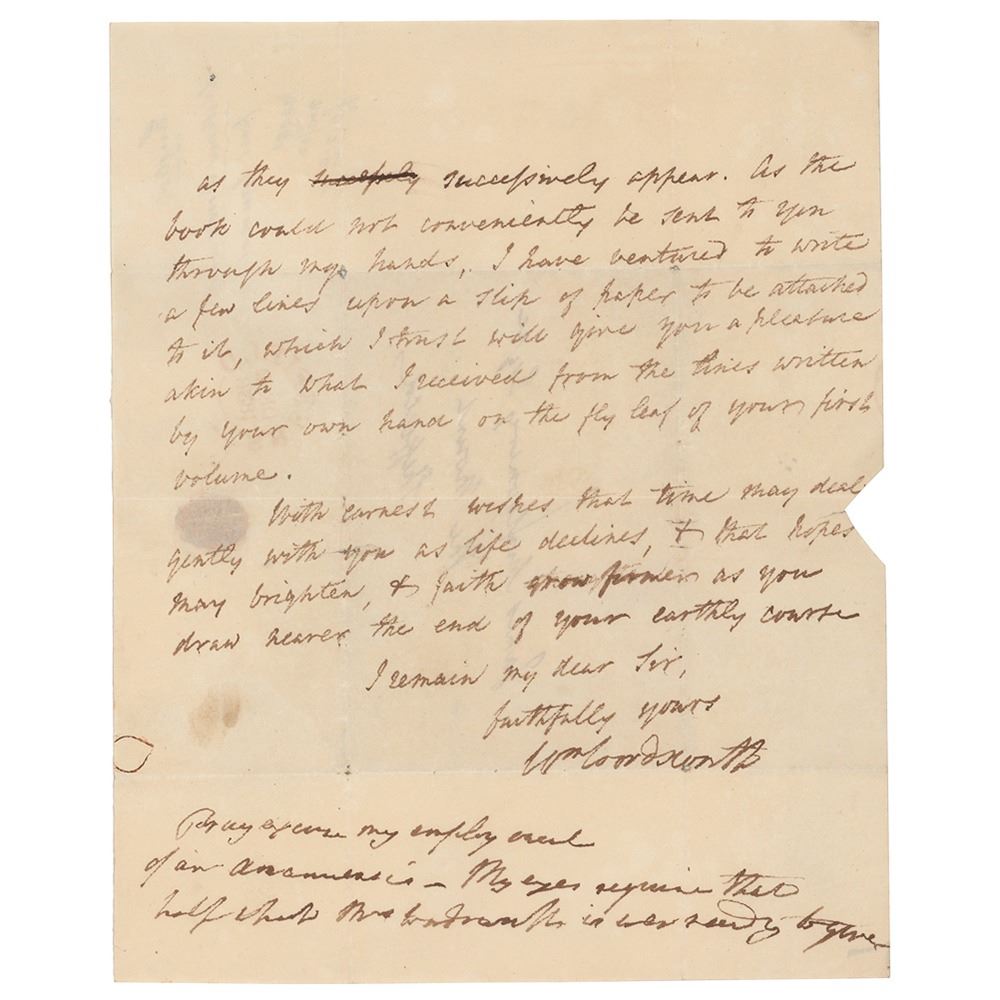 as they ~~succesfuly~~ successively appear. As the
book could not conveniently be sent to you
through my hands, I have ventured to write
a few lines upon a slip of paper to be attached
to it, which I trust will give you a pleasure
akin to what I received from the lines written
by your own hand on the fly leaf of your first
volume.
With earnest wishes that time may deal
gently with you as life declines, & that hopes
may brighten, & faith grow firmer as you
draw nearer the end of your earthly course
I remain my dear Sir,
faithfully yours
Wm Wordsworth
Pray excuse my employment
of an amanuensis – My eyes require that
help which Mrs Wordsworth is ever ready to give